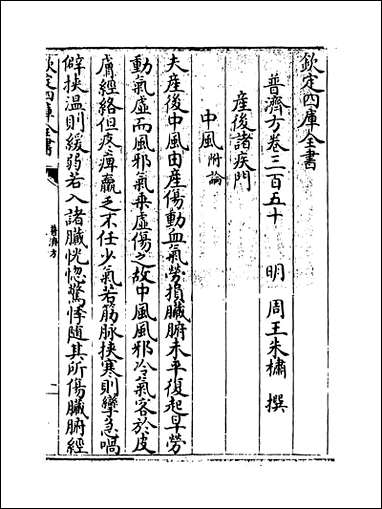 欽定四庫全書
普濟方卷三百五十　明　周王朱橚　撰
産後諸疾門
中風附論
夫産後中風由産傷動血氣勞損臟腑未平復起早勞
動氣虛而風邪氣乗虛傷之故中風風邪冷氣客於皮
膚經絡但疼痺羸乏不任少氣若筋脉挟寒則攣急喎
僻挾温則緩弱若入諸臟恍惚驚悸随其所傷臟腑經
欽定四庫全書
普濟方
一